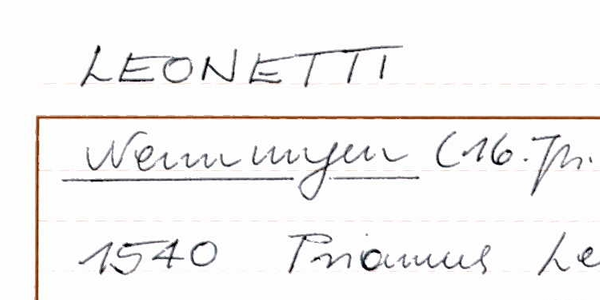 LEONETTI
Nennungen (16. Jh.
1540 Priamus Le